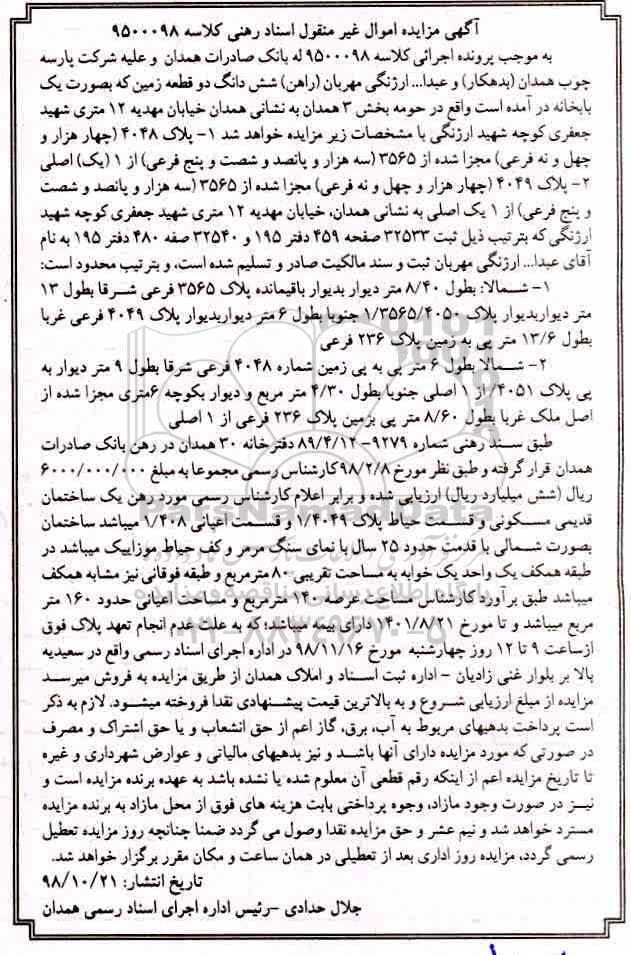 آگهی مزایده اموال غیر منقول اسناد رهنی کلاسه ۹۵۰۰۰۹۸
به موجب پرونده اجرائی کلاسه ۹۵۰۰۰۹۸ له بانک صادرات همدان و علیه شرکت پارسه
چوب همدان (بدهکار) و عبدا... ارژنگی مهربان (راهن) شش دانگ دو قطعه زمین که بصورت یک
بابخانه در آمده است واقع در حومه بخش ۳ همدان به نشانی همدان خیابان مهدیه ۱۲ متری شهید
جعفری کوچه شهید ارژنگی با مشخصات زیر مزایده خواهد شد ۱- پلاک ۴۰۴۸ (چهار هزار و
چهل و نه فرعی) مجزا شده از ۳۵۶۵ (سه هزار و پانصد و شصت و پنج فرعی) از ۱ (یک) اصلی
۲- پلاک ۴۰۴۹ (چهار هزار و چهل و نه فرعی) مجزا شده از ۳۵۶۵ (سه هزار و پانصد و شصت
و پنج فرعی) از ۱ یک اصلی به نشانی همدان، خیابان مهدیه ۱۲ متری شهید جعفری کوچه شهید
ارژنگی که بترتیب ذیل ثبت ۳۲۵۳۳ صفحه ۴۵۹ دفتر ۱۹۵ و ۳۲۵۴۰ صفه ۴۸۰ دفتر ۱۹۵ به نام
آقای عبدا... ارژنگی مهربان ثبت و سند مالکیت صادر و تسلیم شده است، و بترتیب محدود است:
۱- شمالا: بطول ۸/۴۰ متر دیوار بدیوار باقیمانده پلاک ۳۵۶۵ فرعی شرقا بطول ۱۳
متر دیواربدیوار پلاک ۱/۳۵۶۵/۴۰۵۰ جنوبا بطول ۶ متر دیواربدیوار پلاک ۴۰۴۹ فرعی غربا
بطول ۱۳/۶ متر پی به زمین پلاک ۲۳۶ فرعی
۲- شمالا بطول ۶ متر پی به پی زمین شماره ۴۰۴۸ فرعی شرقا بطول ۹ متر دیوار به
پی پلاک ۴۰۵۱/ از ۱ اصلی جنوبا بطول ۴/۳۰ متر مربع و دیوار بکوچه ۶متری مجزا شده از
اصل ملک غربا بطول ۸/۶۰ متر پی بزمین پلاک ۲۳۶ فرعی از ۱ اصلی
طبق سند رهنی شماره ۹۲۷۹-۸۹/۴/۱۲ دفترخانه ۳۰ همدان در رهن بانک صادرات
همدان قرار گرفته و طبق نظر مورخ ۹۸/۲/۸ کارشناس رسمی مجموعا به مبلغ ۶۰۰۰/۰۰۰/۰۰۰
ریال (شش میلیارد ریال) ارزیابی شده و برابر اعلام کارشناس رسمی مورد رهن یک ساختمان
قدیمی مسکونی و قسمت حیاط پلاک ۱/۴۰۴۹ و قسمت اعیانی ۱/۴۰۸ میباشد ساختمان
بصورت شمالی با قدمت حدود ۲۵ سال با نمای سنگ مرمر و کف حیاط موزاییک میباشد در
طبقه همکف یک واحد یک خوابه به مساحت تقریبی ۸۰ مترمربع و طبقه فوقانی نیز مشابه همکف
میباشد طبق برآورد کارشناس مساحت عرصه ۱۴۰ مترمربع و مساحت اعیانی حدود ۱۶۰ متر
مربع میباشد و تا مورخ ۱۴۰۱/۸/۲۱ دارای بیمه میباشد؛ که به علت عدم انجام تعهد پلاک فوق
ازساعت ۹ تا ۱۲ روز چهارشنبه مورخ ۹۸/۱۱/۱۶ در اداره اجرای اسناد رسمی واقع در سعیدیه
بالا بر بلوار غنی زادیان - اداره ثبت اسناد و املاک همدان از طریق مزایده به فروش میرسد
مزایده از مبلغ ارزیابی شروع و به بالاترین قیمت پیشنهادی نقدا فروخته میشود. لازم به ذکر
است پرداخت بدهیهای مربوط به آب، برق، گاز اعم از حق انشعاب و یا حق اشتراک و مصرف
در صورتی که مورد مزایده دارای آنها باشد و نیز بدهیهای مالیاتی و عوارض شهرداری و غیره
تا تاریخ مزایده اعم از اینکه رقم قطعی آن معلوم شده یا نشده باشد به عهده برنده مزایده است و
نیز در صورت وجود مازاد، وجوه پرداختی بابت هزینه های فوق از محل مازاد به برنده مزایده
مسترد خواهد شد و نیم عشر و حق مزایده نقدا وصول می گردد ضمنا چنانچه روز مزایده تعطیل
رسمی گردد، مزایده روز اداری بعد از تعطیلی در همان ساعت و مکان مقرر برگزار خواهد شد.
تاریخ انتشار: ۹۸/۱۰/۲۱
جلال حدادی -رئیس اداره اجرای اسناد رسمی همدان
ParsNamadData
پایگاه اطلاع رسانی مناقصه و مزایده
۰۲۱-۸۸۳۴۹۶۷۰-۵